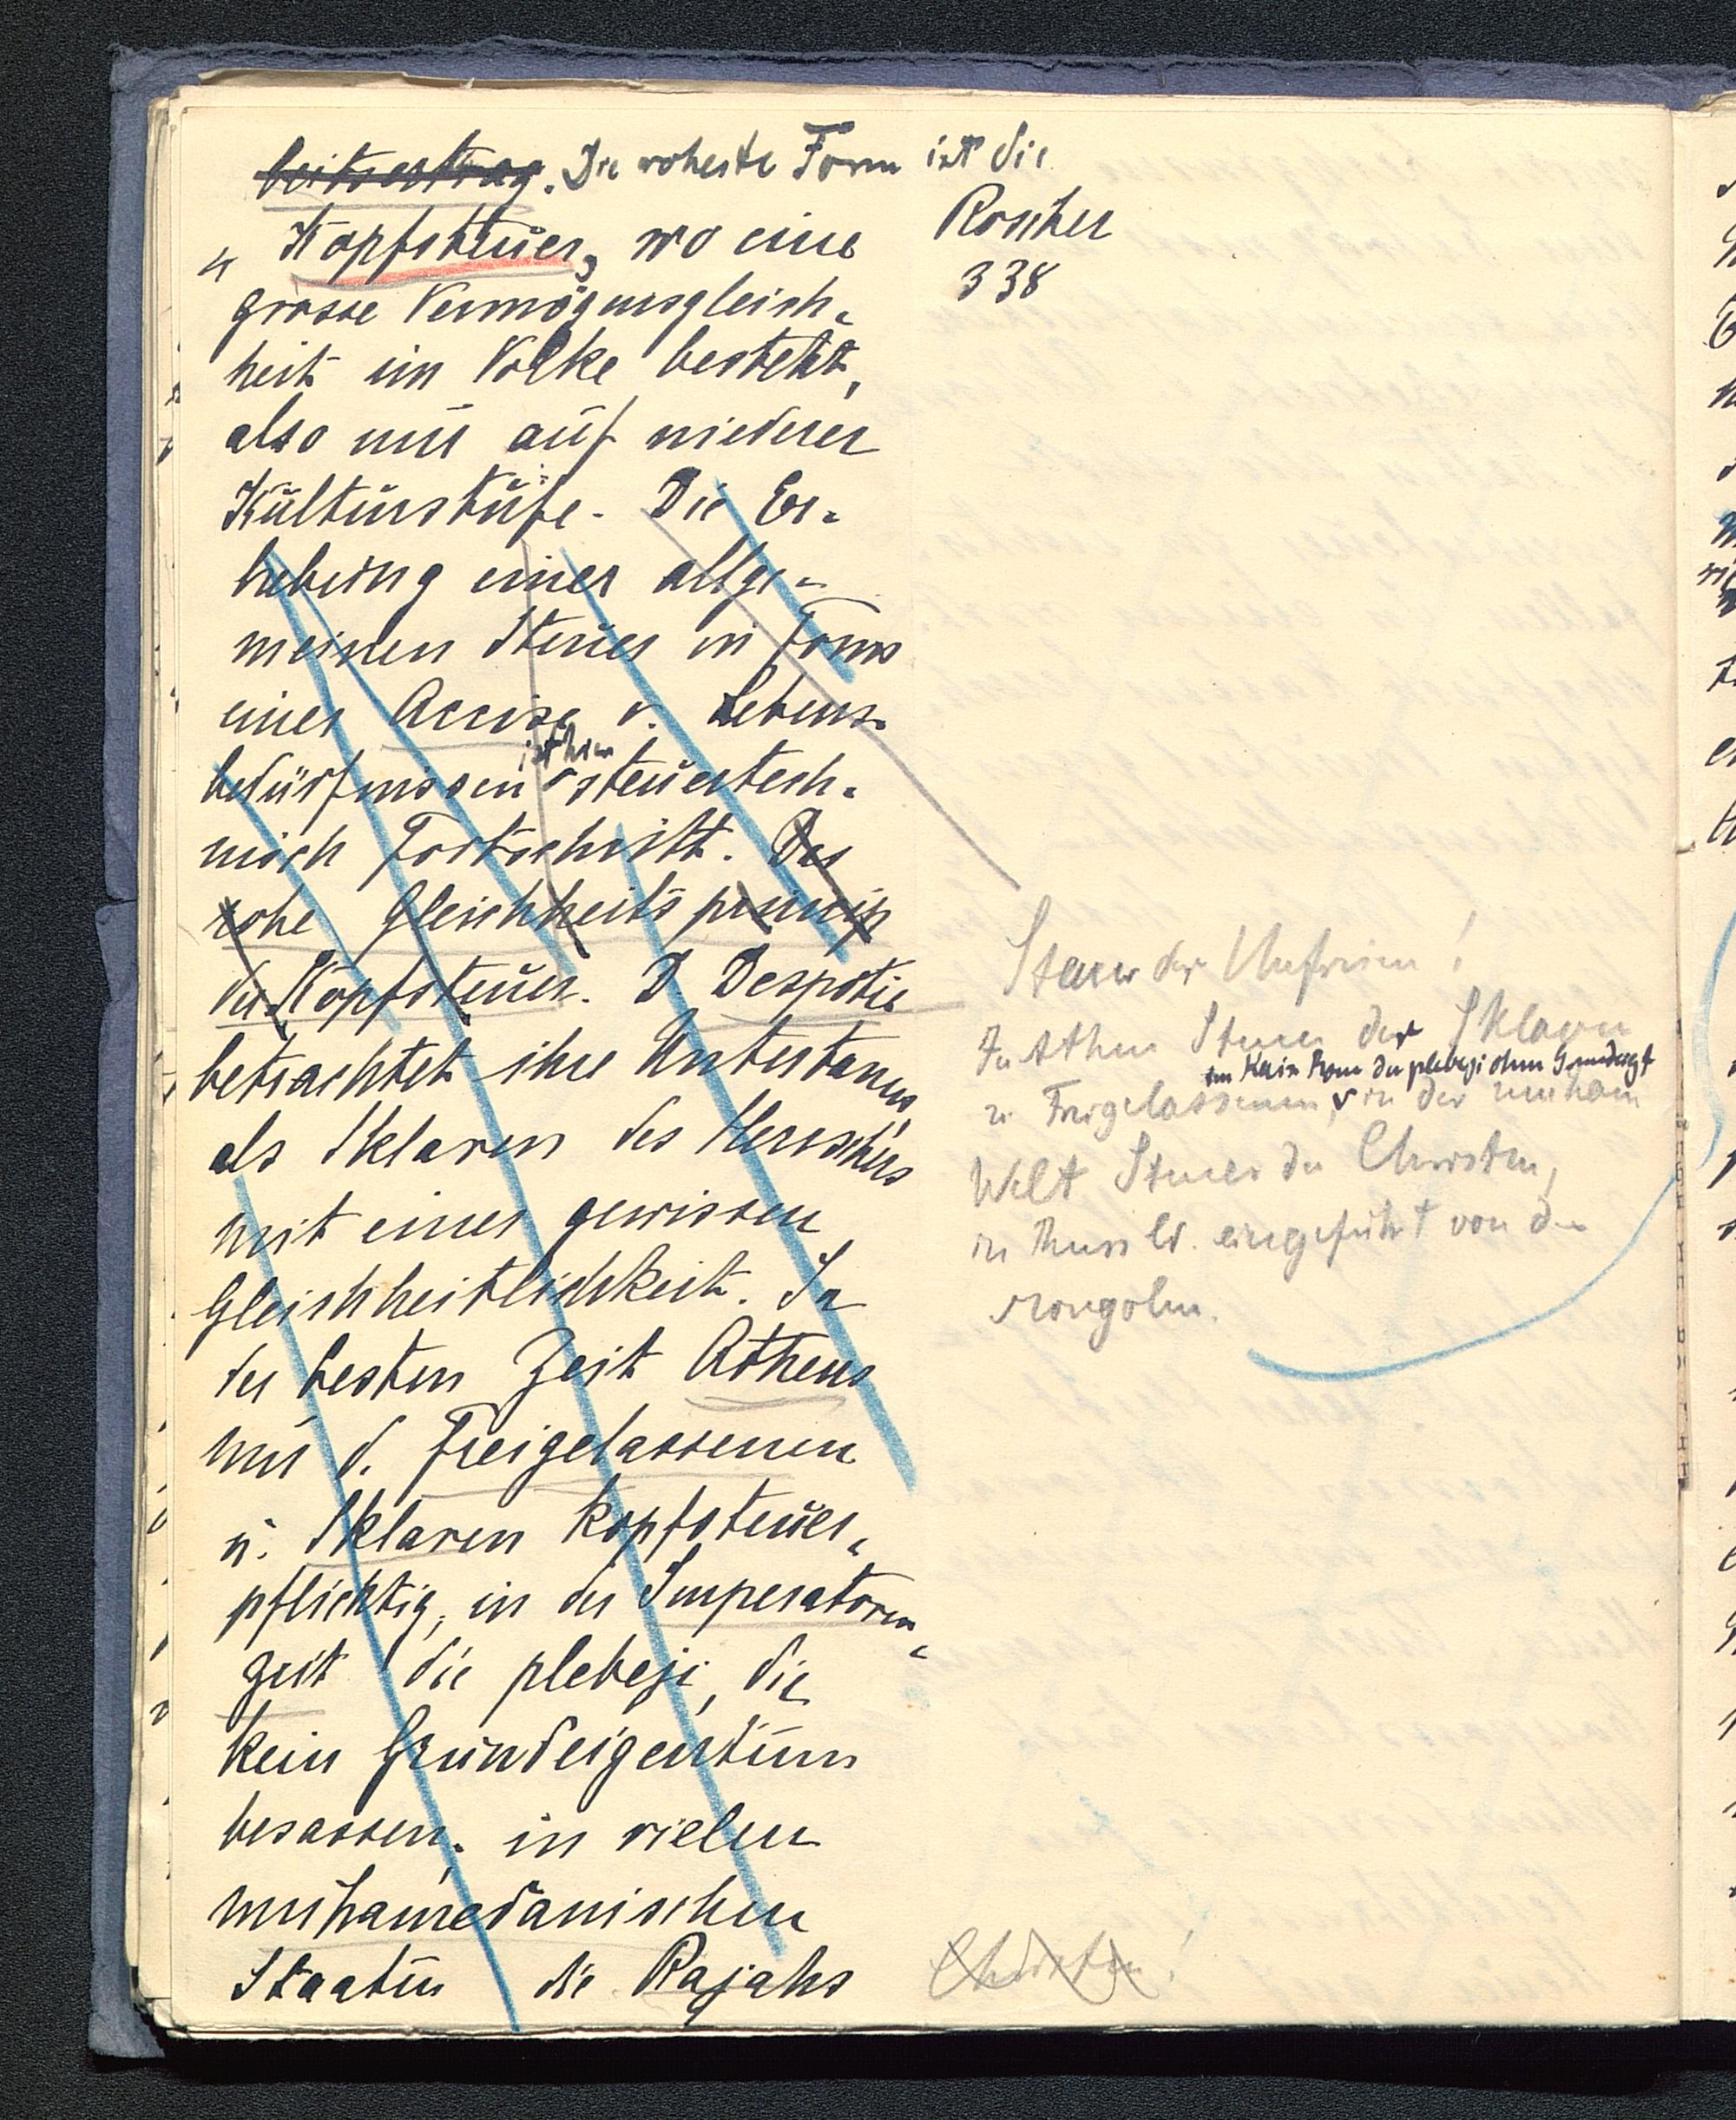 beitsertrag. Die roheste Form ist die
Kopfsteuer, wo eine
grosse Vermögensgleich-
heit im Volke besteht,
also nur auf niederer
Kulturstufe. Die Er-
hebung einer allge-
meinen Steuer in Form
einer Accise v. Lebens-
bedürfnissen ist hier steuertech-
nisch Fortschritt. Das
rohe Gleichheitsprinzip
der Kopfsteuer. D. Despotie
betrachtet ihre Untertanen
als Sklaven des Herrschers
mit einer gewissen
Gleichheitlichkeit. In
der besten Zeit Athens
nur d. Freigelassenen
u. Sklaven kopfsteuer-
pflichtig, in der Imperatoren-
zeit die plebeji, die
kein Grundeigentum
besassen, in vielen
muhamedanischen
Staaten die Rajahs
Roscher
338
Steuer der Unfreien!
In Athen Steuer der Sklaven
u Freigelassenen, im Kais Rom der plebeji ohne Grundeigt
in der muham
Welt Steuer der Christen,
in Russld. eingeführt von den
Mongolen.
Christen!